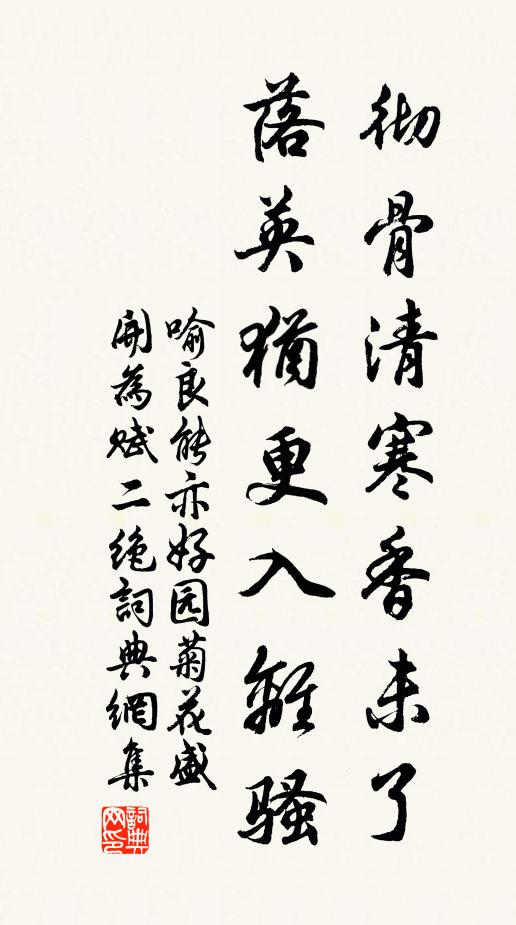 彻骨清寒香未了
落英猶更入離骚
喻良能亦好园菊花盛
開為赋二绝詞典網集
詞典网印